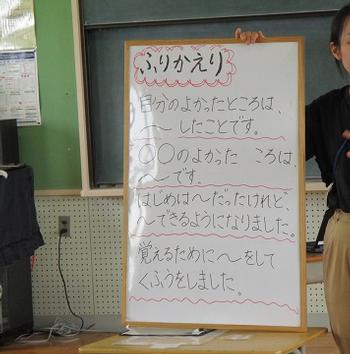 ふりかえり
自分のよかったところは、
〜したことです。
○○のよかった ころは、
〜です。
はじめは〜だったけれど、
〜できるようになりました。
覚えるために〜をして
くふうをしました。